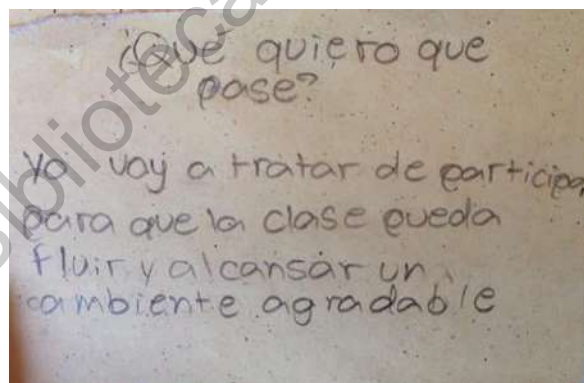 ¿Qué quiero que
pase?
Yo voy a tratar de participa
para que la clase pueda
fluir y alcansar un
cambiente agradable